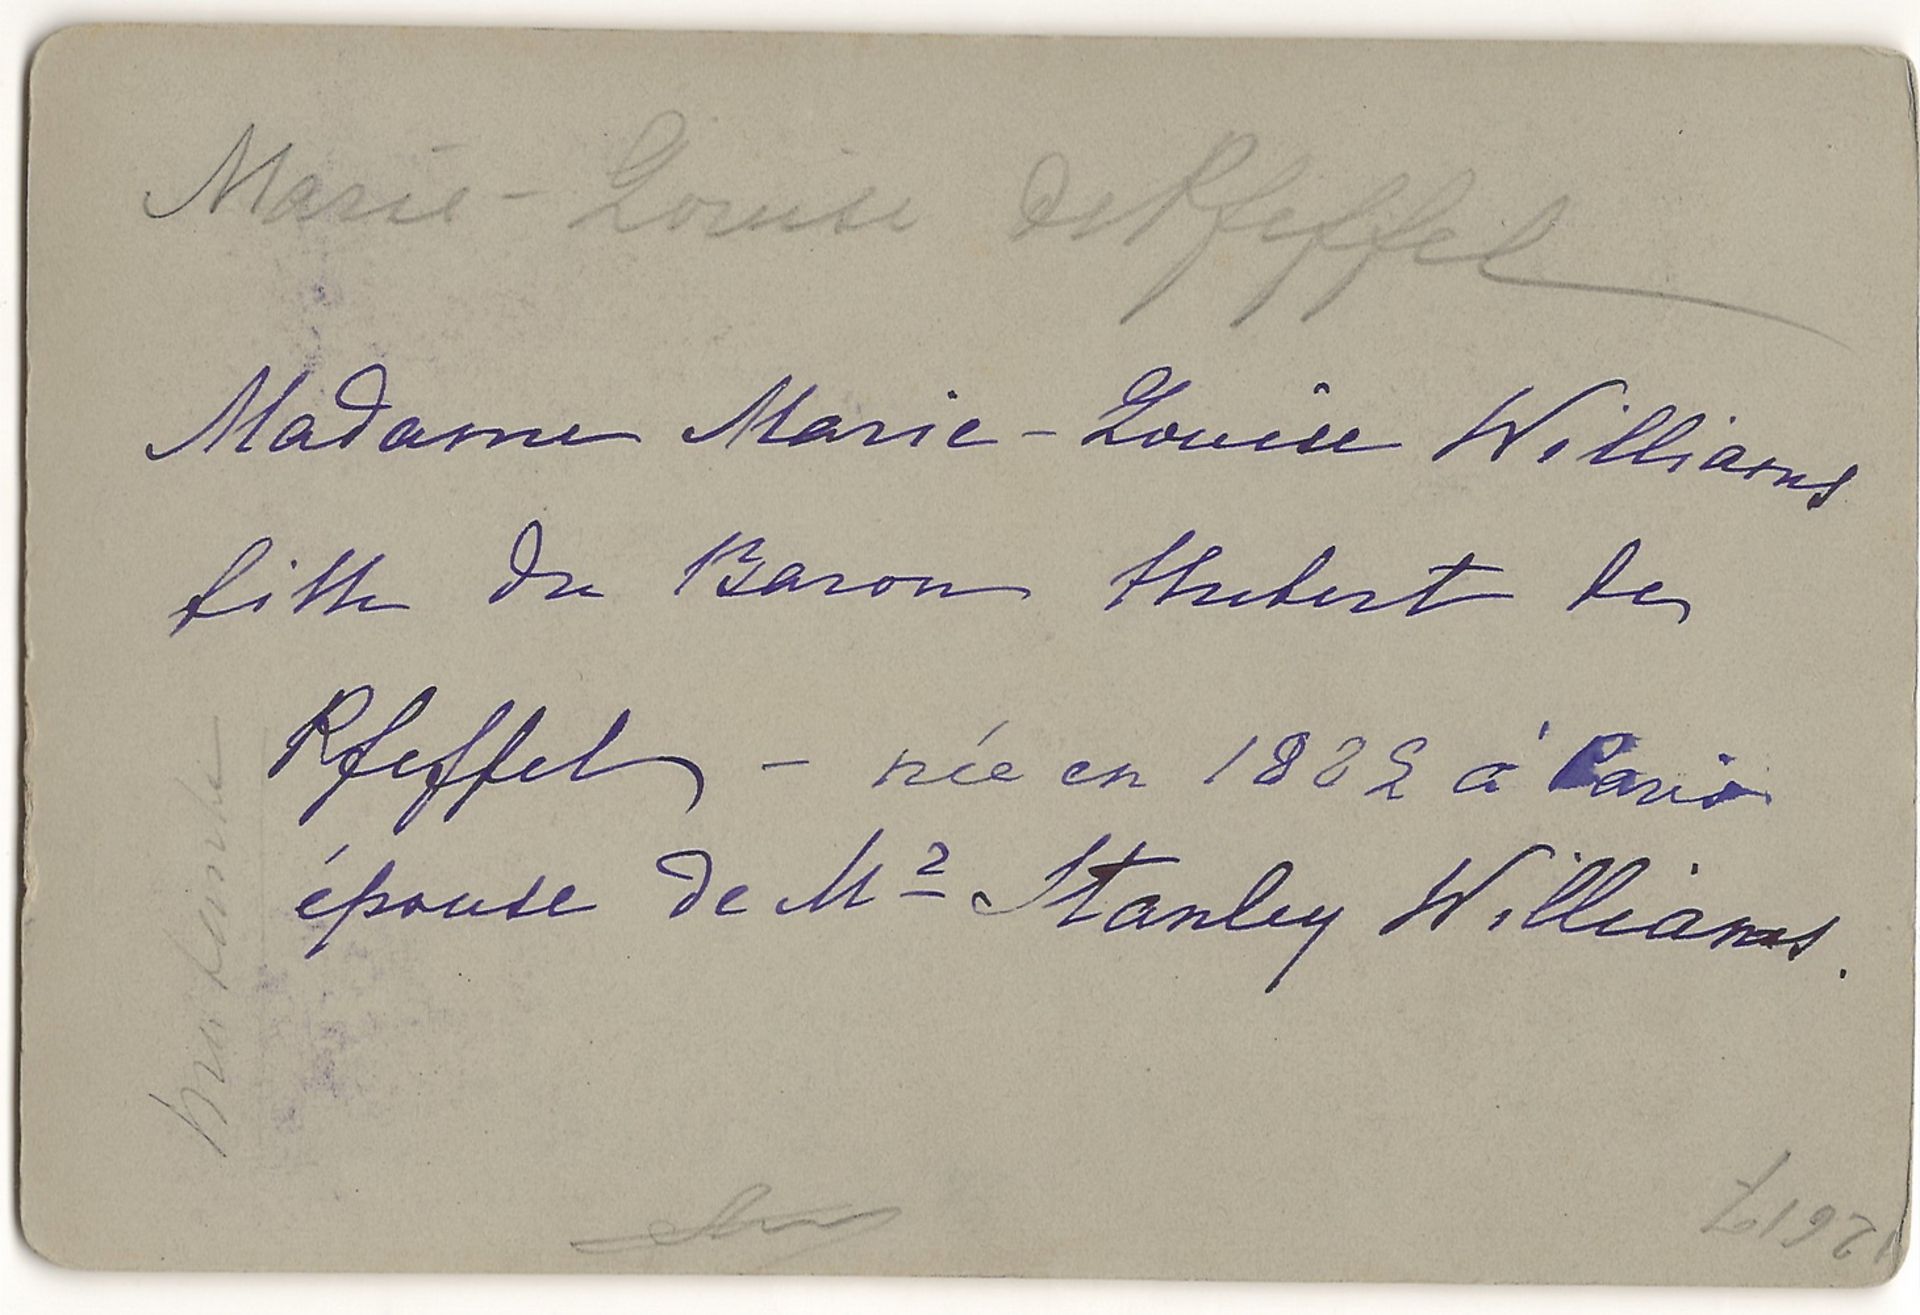 Marie-Louise de Pfeffel
Madame Marie-Louise Williams
fille du Baron Hubert de
Pfeffel - née en 1882 à Paris
épouse de Mr Stanley Williams.